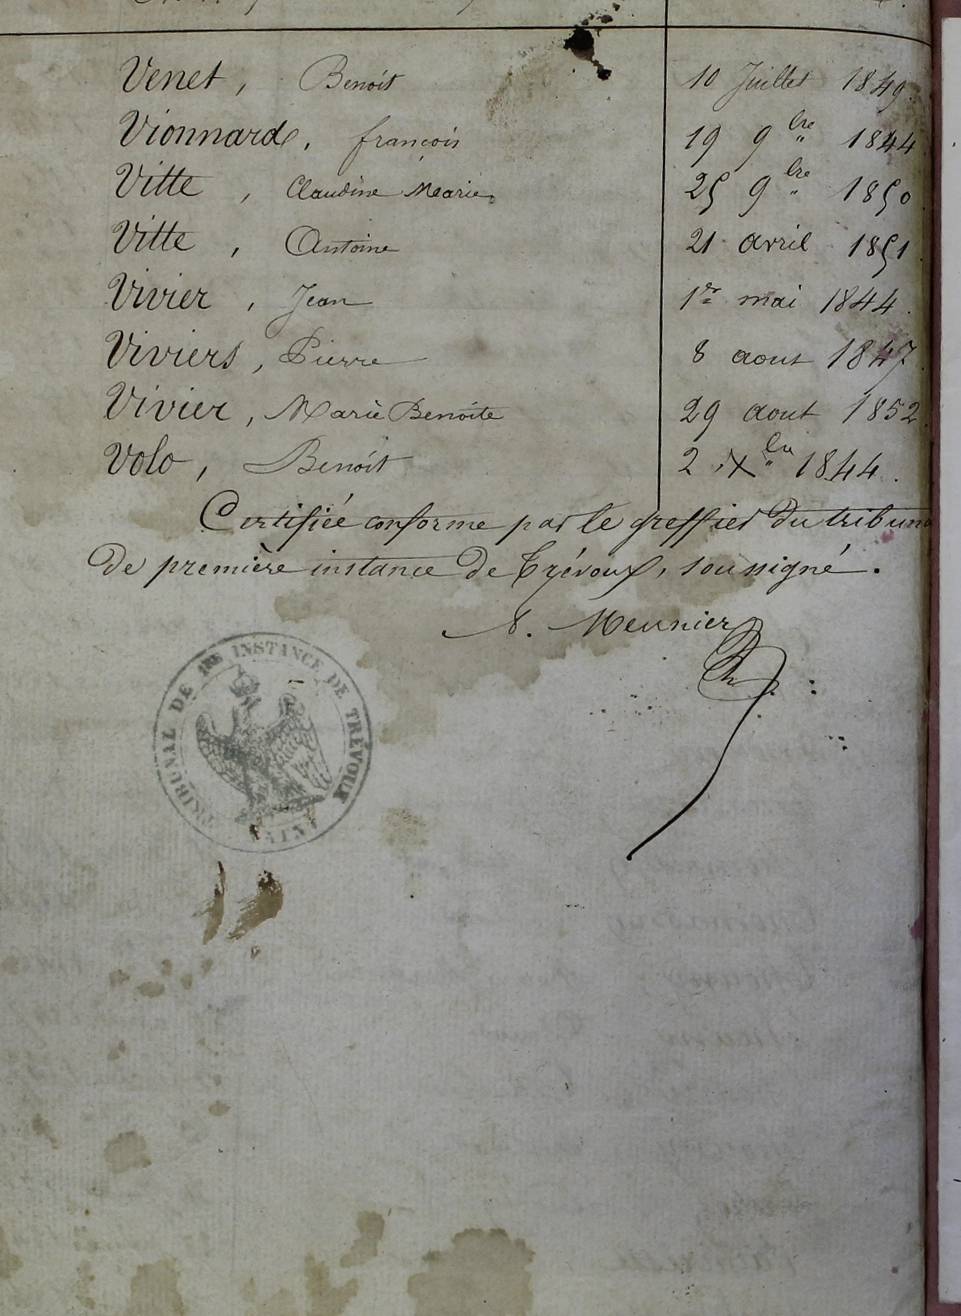 Venet, Benoit 10 Juillet 1849.
Vionnard, françois 19 9bre 1844.
Vitte, Claudine Marie 25 9bre 1850.
Vitte, Antoine 21 avril 1851.
Vivier, Jean 1er mai 1844.
Viviers, Pierre 8 aout 1847.
Vivier, Marie Benoite 29 aout 1852.
Volo, Benoit 2 Xbre 1844.
Certifiée conforme par le greffier du tribunal
de première instance de Trévoux, soussigné.
Meunier
TRIBUNAL DE 1RE INSTANCE DE TRÉVOUX
(AIN)